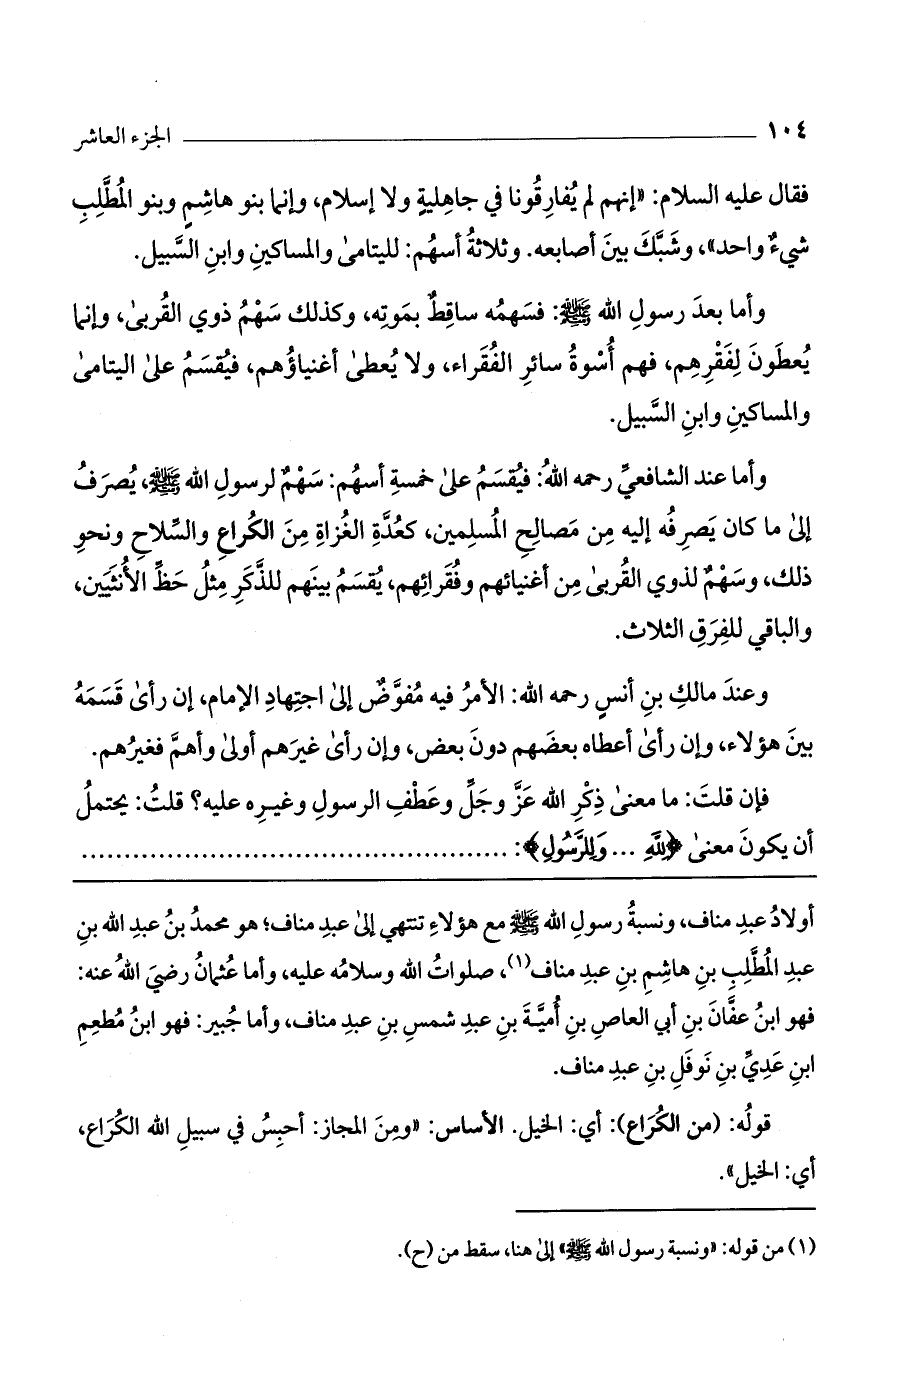 ١٠٤ ــــــــــــــــــــــــــــــــــــــــ الجزء العاشر
فقال عليه السلام: «إنهم لم يُفارِقُونا في جاهِليةٍ ولا إسلام، وإنما بنو هاشِمٍ وبنو المُطَّلِبِ
شيءٌ واحد»، وشَبَّكَ بينَ أصابعه. وثلاثةُ أسهُم: لليتامىٰ والمساكينِ وابنِ السَّبيل.
وأما بعدَ رسولِ الله ﷺ: فسَهمُه ساقِطٌ بمَوتِه، وكذلك سَهْمُ ذوي القُربىٰ، وإنما
يُعطَونَ لِفَقْرِهِم، فهم أُسْوةُ سائرِ الفُقَراء، ولا يُعطىٰ أغنياؤُهم، فيُقسَمُ علىٰ اليتامىٰ
والمساكينِ وابنِ السَّبيل.
وأما عند الشافعيِّ رحمه اللهُ: فيُقسَمُ علىٰ خمسةِ أسهُم: سَهْمٌ لرسولِ الله ﷺ، يُصرَفُ
إلىٰ ما كان يَصرِفُه إليه مِن مَصالِحِ المُسلِمين، كعُدَّةِ الغُزاةِ مِنَ الكُراعِ والسِّلاحِ ونحوِ
ذلك، وسَهْمٌ لذوي القُربىٰ مِن أغنيائهم وفُقَرائِهم، يُقسَمُ بينَهم للذَّكَرِ مِثلُ حَظِّ الأُنثَيَين،
والباقي للفِرَقِ الثلاث.
وعندَ مالكِ بنِ أنسٍ رحمه الله: الأمرُ فيه مُفوَّضٌ إلىٰ اجتِهادِ الإمام، إن رأىٰ قَسَمَهُ
بينَ هؤلاء، وإن رأىٰ أعطاه بعضَهم دونَ بعض، وإن رأىٰ غيرَهم أولىٰ وأهمَّ فغيرُهم.
فإن قلتَ: ما معنىٰ ذِكْرِ الله عَزَّ وجَلَّ وعَطْفِ الرسولِ وغيرِه عليه؟ قلتُ: يحتملُ
أن يكونَ معنىٰ ﴿لِلَّهِ ... وَلِلرَّسُولِ﴾: ..................................................
أولادُ عبدِ مناف، ونسبةُ رسولِ الله ﷺ مع هؤلاءِ تنتهي إلىٰ عبدِ مناف؛ هو محمدُ بنُ عبدِ الله بنِ
عبدِ المُطَّلِبِ بنِ هاشِمِ بنِ عبدِ مناف(١)، صلواتُ الله وسلامُه عليه، وأما عُثمانُ رضيَ اللهُ عنه:
فهو ابنُ عفَّانَ بنِ أبي العاصِ بنِ أُميَّةَ بنِ عبدِ شمسِ بنِ عبدِ مناف، وأما جُبير: فهو ابنُ مُطعِمِ
ابنِ عَدِيِّ بنِ نَوفَلِ بنِ عبدِ مناف.
قولُه: (من الكُرَاع): أي: الخيل. الأساس: «ومِنَ المجاز: أحبِسُ في سبيلِ الله الكُرَاع،
أي: الخيل».
(١) من قوله: «ونسبة رسول الله ﷺ» إلىٰ هنا، سقط من (ح).